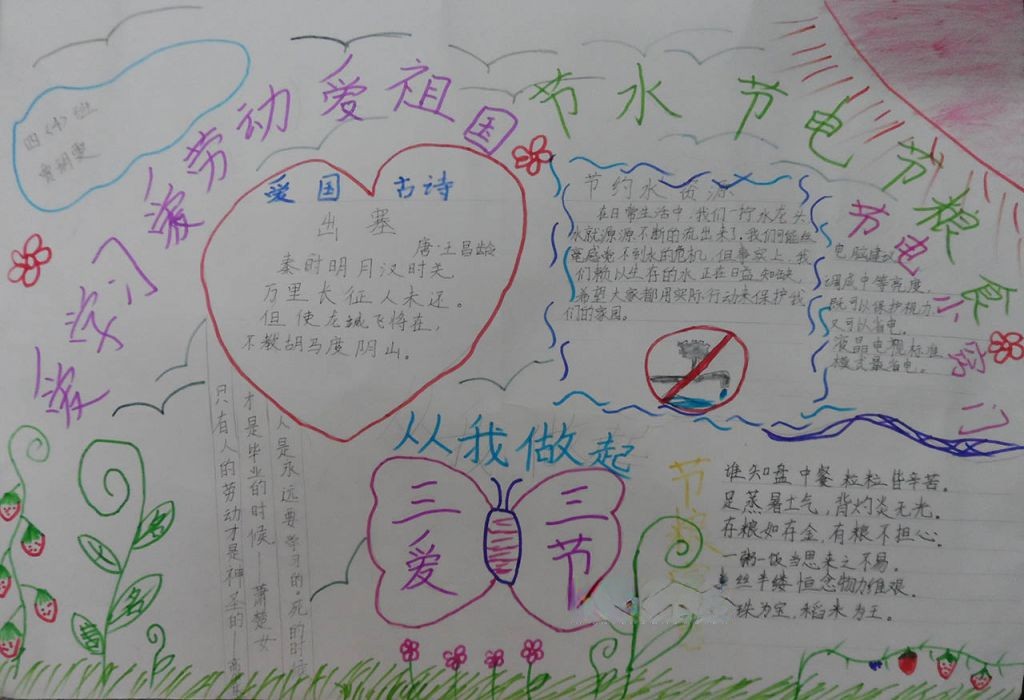 四(十)班
爱学习爱劳动爱祖国
节水节电节粮食
爱国 古诗
出塞
唐·王昌龄
秦时明月汉时关
万里长征人未还。
但使龙城飞将在,
不教胡马度阴山。
节约水资源
在日常生活中,我们一拧水龙头
水就源源不断的流出来了.我们可能丝
毫感觉不到水的危机.但事实上,我
们赖以生存的水正在日益短缺,
希望大家都用实际行动来保护我
们的家园。
节电小窍门
电脑建议
调成中等亮度,
既可以保护视力,
又可以省电。
液晶电视标准
模式最省电。
人是永远要学习的。死的时候
才是毕业的时候——萧楚女
只有人的劳动才是神圣的——高
从我做起
三爱
三节
节粮
谁知盘中餐 粒粒皆辛苦.
足蒸暑土气,背灼炎天光.
存粮如存金,有粮不担心.
一粥一饭当思来之不易.
丝半缕恒念物力维艰.
珠为宝,稻米为王。